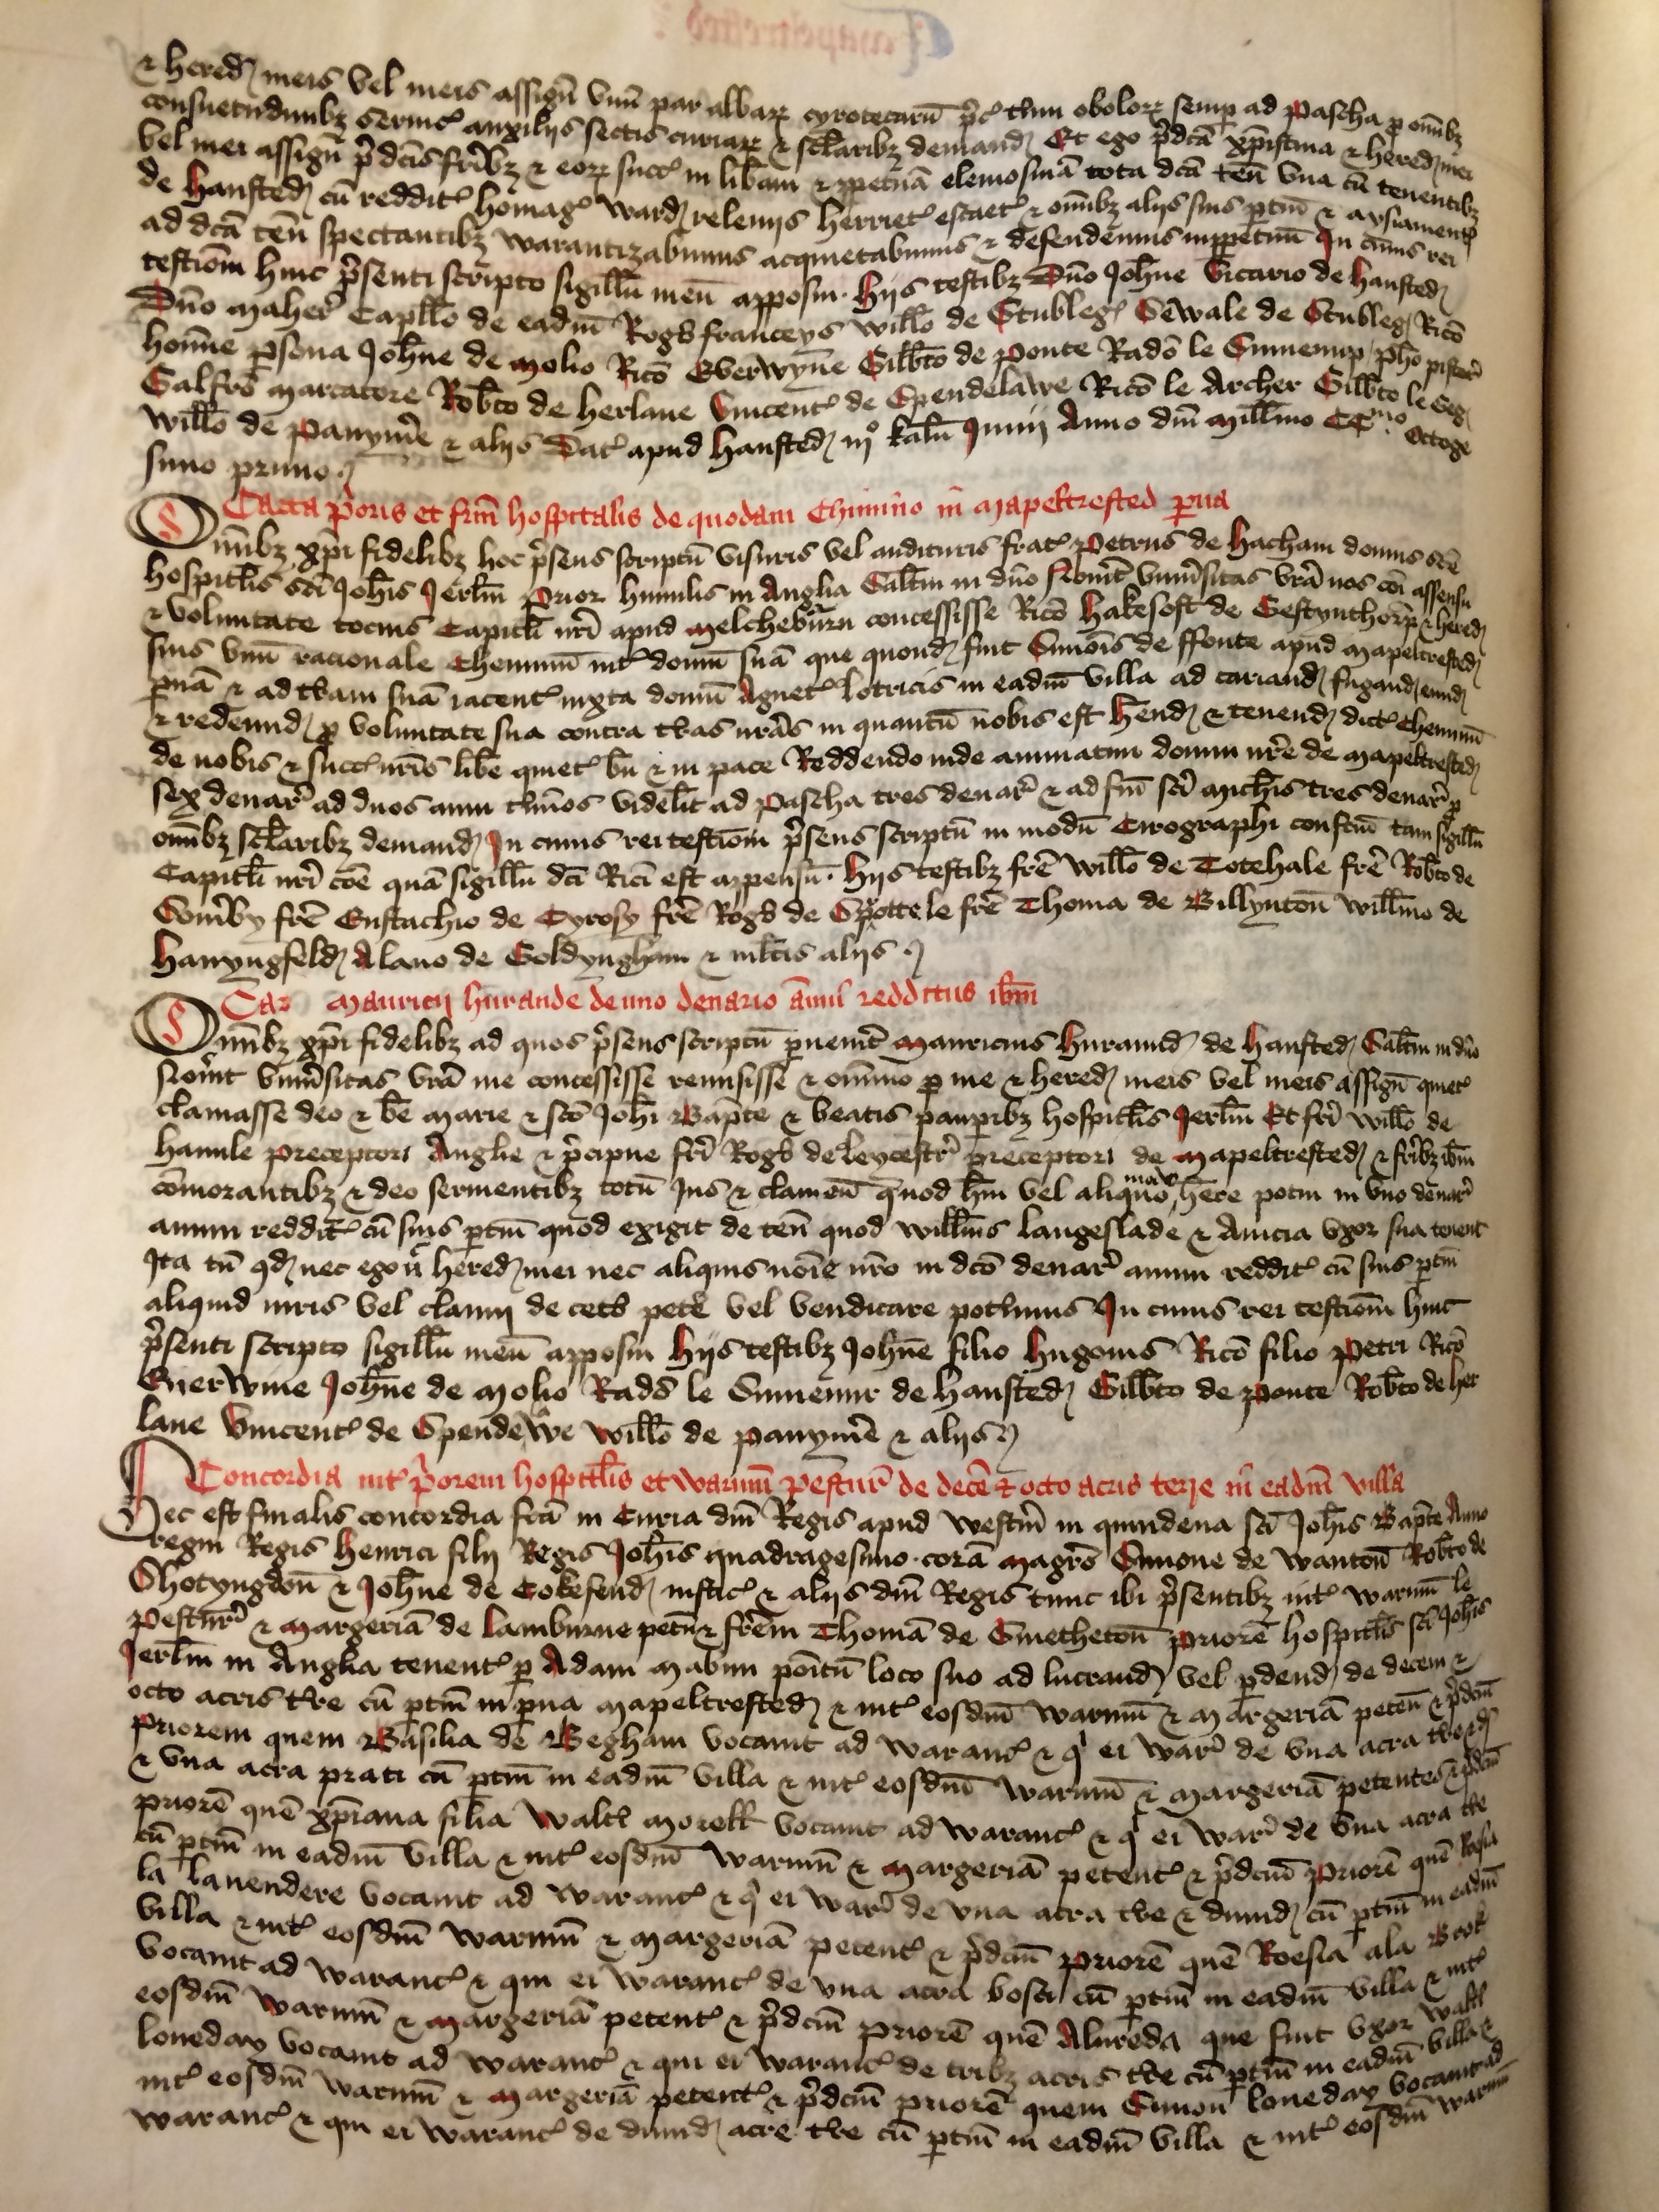 & hered meis vel meis assign̄ vnū par albaꝝ cyrotecarū p̄c triū oboloꝝ semꝑ ad Pascha ꝓ om̄ibꝫ
consuetudinibꝫ seruic auxilijs sectis curiaꝝ & sclaribꝫ demand Et ego p̄dcā xp̄istina & hered mei
vel mei assign̄ p̄dcis frībꝫ & eoꝝ succ in lib̄am & ꝑpetuā elemosinā tota dcā ten̄ vna cū tenentibꝫ
de hansted cū reddit homag ward releuijs herriet escaet & om̄ibꝫ alijs suis ptin̄ & aysiament
ad dcā ten̄ spectantibꝫ warantizabimus acquietabimus & defendemus inꝑpetuū In cuius rei
testiom̄ huic p̄senti scripto sigillū meū apposui. hijs testibꝫ Dn̄o Joh̄ne vicario de hansted
Dn̄o maheͬ Capll̄o de eadm̄ Rog̃o franceys will̄o de Stubleg Sewale de Stubleg Ricō
homīne psona Joh̄ne de molio Ricō Everwyne Gilb̄to de Ponte Radō le Sumenuꝑ ph̄o pistor
Galfrō marcatore Rob̄to de herlane vincent de Spendelawe Ricō le Archer Gilb̄to le Seg
will̄o de Panym̄e & alijs Dat apud hansted iijº kaln̄ Junij Anno dn̄i mill̄mo CCᵐᵒ Octoge
simo primo
Carta p̄oris et frm̄ hospitalis de quodam Chimino in mapeltrested ꝑua
Om̄ibꝫ xp̄i fidelibꝫ hoc p̄sens scriptū visuris vel audituris frat Petrus de hacham domus sc̄e
hospitl̄is sc̄i Joh̄is Jerl̄m Prior humilis in Anglia Salt̄m in dn̄o Nou͛it vniu͛sitas vr̄a nos cōi assensu
& voluntate tocius Capitl̄i nr̄i apud melcheburn concessisse Ricō hakesoft de Gestynthorp & hered
suis vnū racionale Cheminū int domū suā que quond fuit Simōis de ffonte apud mapeltrested
ꝑuā & ad t͛ram suā iacent iuxta domū Agnet lotricis in eadm̄ villa ad cariand fugand eund
& redeund ꝓ voluntate sua contra t͛ras nr̄as in quantū nobis est hend & tenend dict cheminū
de nobis & succ nr̄is lib̄e quiet bn̄ & in pace Reddendo inde annuatim domui nr̄e de mapeltrested
sex denar̄ ad duos anni t͛mīos videlit ad Pascha tres denar̄ & ad fm̄ sc̄i mich̄is tres denar̄ ꝓ
om̄ibꝫ sclaribꝫ demand In cuius rei testiom̄ p̄sens scriptū in modū Cirographi confcm̄ tam sigillū
Capitl̄i nr̄i cōe quā sigillū dc̄i Ric̄i est appensū. hijs testibꝫ fr̄e will̄o de Totehale fr̄e Rob̄to de
Som͛by fr̄e Eustachio de Cyrosy fr̄e Rog̃o de Spottele fr̄e Thoma de Billyntoū will̄mo de
hanyngfeld Alano de Goldyngh̄am & mlt̄is alijs
Car mauricij hurande de uno denario ān̄ui redditus ib̄m
Om̄ibꝫ xp̄i fidelibꝫ ad quos p̄sens scriptū ꝑuen͛it mauricius huraund de hansted Salt̄m in dn̄o
Nou͛it vniu͛sitas vr̄a me concessisse remisisse & om̄ino ꝓ me & hered meis vel meis assign̄ quiet
clamasse deo & bē marie & scō Joh̄i Bap̄te & beatis paupibꝫ hospitl̄is Jerl̄m Et fr̄i will̄o de
hanule preceptori Anglie & p̄cipue fr̄i Rog̃o de leycestr̄ preceptori de mapeltrested & fr̄ibꝫ ib̄m
cōmorantibꝫ & deo seruientibꝫ totū Jus & clameū quod hui vel aliquo modo hēre potui in vno denar̄
annui reddit cū suis ptin̄ quod exigit de ten̄ quod will̄ms langeslade & Amicia vxor sua tenent
Ita tn̄ qd nec ego nͨ hered mei nec aliquis nōie nr̄o in dcō denar̄ annui reddit cū suis ptin̄
aliquid iuris vel clamij de cet͛o pet͛e vel vendicare pot͛imus In cuius rei testiom̄ huic
p̄senti scripto sigillū meū apposui hijs testibꝫ Joh̄ne filio hugonis Ricō filio Petri Ricō
Euerwine Joh̄ne de molio Radō le Sumenur de hansted Gilb̄to de Ponte Rob̄to de her
lane vincent de Spendelawe will̄o de panym̄e & alijs
Concordia int p̄orem hospitl̄is et warinū pestur̄ de decē & octo acris terre in eadm̄ villa
Hec est finalis concordia fcā in Curia dn̄i Regis apud westm̄ in quindena sc̄i Joh̄is Bap̄te Anno
regni Regis henrici filij Regis Joh̄is quadragesimo. corā magrō Simone de wantoū Rob̄to de
Shotyngdoū & Joh̄ne de Cokefend iustic & alijs dn̄i Regis tunc ibi p̄sentibꝫ int warinū le
pestur̄ & margeriā de lamburne peten̄ & fr̄em Thomā de Smethetoū priorē hospitl̄is sc̄i Joh̄is
Jerl̄m in Anglia tenent ꝑ Adam mabun poītū loco suo ad lucrand vel ꝑdend de decem &
octo acris t͛re cū ptin̄ in ꝑua mapeltrested & int eosdm̄ warinū & margeriā peten̄ & p̄dcm̄
priorem quem Basilia de Begham vocauit ad warant & qͥ ei war̄ de vna acra t͛re & di
& vna acra prati cū ptin̄ in eadm̄ villa & int eosdm̄ warinū & margeriā petentes & p̄dcm̄
priorē quē xp̄iana filia walt͛i morell vocauit ad warant & qͥ ei war̄ de vna acra t͛re
cū ptin̄ in eadm̄ villa & int eosdm̄ warinū & margeriā petent & p̄dcm̄ Priorē quē Basilia
la lauendere vocauit ad warant & qͥ ei war̄ de vna acra t͛re & dimid cū ptin̄ in eadm̄
villa & int eosdm̄ warinū & margeriā petent & p̄dcm̄ priorē quē Roesia ala Brok
vocauit ad warant & qui ei warant de vna acra bosci cū ptin̄ in eadm̄ villa & int
eosdm̄ warinū & margeriā petent & p̄dcm̄ priorē quē Alureda que fuit vxor walt͛i
loueday vocauit ad warant & qui ei warant de tribꝫ acris t͛re cū ptin̄ in eadm̄ villa &
int eosdm̄ warinū & margeriā petent & p̄dcm̄ priorē quem Simon loueday vocauit ad
warant & qui ei warant de dimid acre t͛re cū ptin̄ in eadm̄ villa & int eosdm̄ warinū